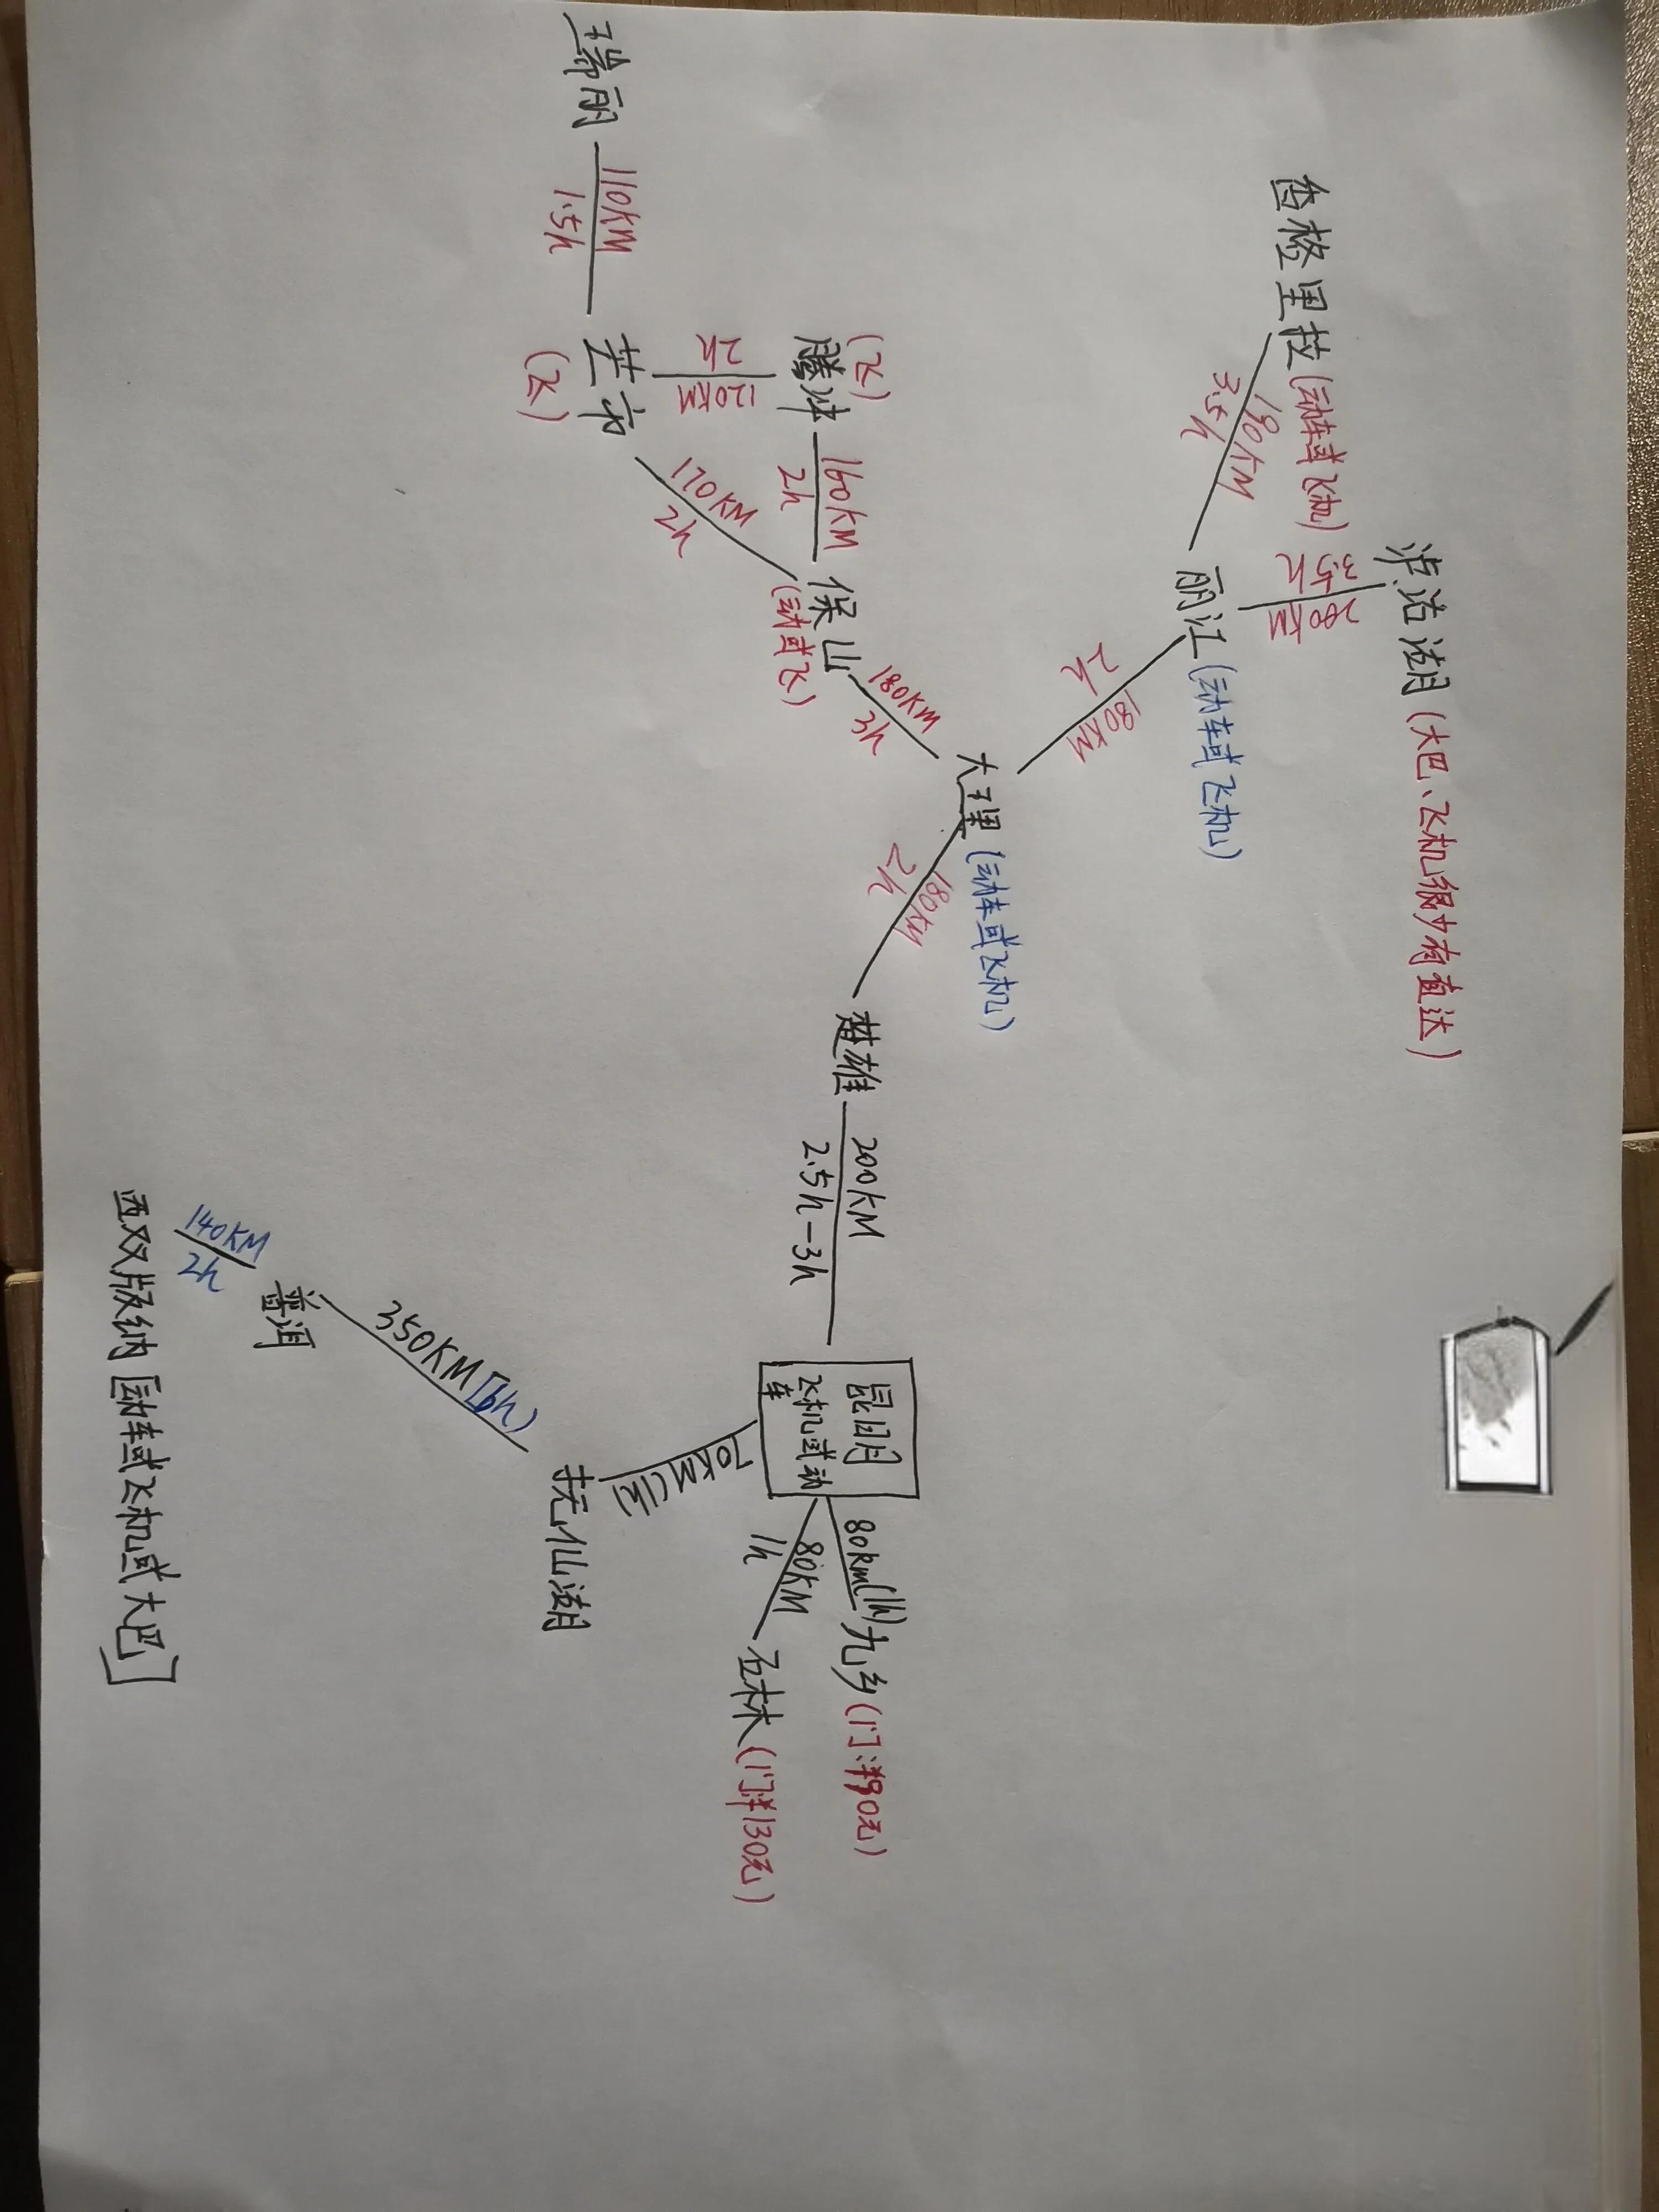 泸沽湖(大巴、飞机很少有直达)
香格里拉(动车或飞机)
190KM
3.5h
200KM
3.5h
丽江(动车或飞机)
180KM
2h
大理(动车或飞机)
180KM
2h
(飞)
腾冲
160KM
2h
保山
(动或飞)
180KM
3h
120KM
2h
瑞丽
110KM
1.5h
芒市
(飞)
170KM
2h
楚雄
200KM
2.5h-3h
昆明
飞机或动
车
80km(1h)
九乡(门:￥90元)
80KM
1h
石林(门￥130元)
70KM
抚仙湖
350KM
普洱
140KM
2h
西双版纳[动车或飞机或大巴]